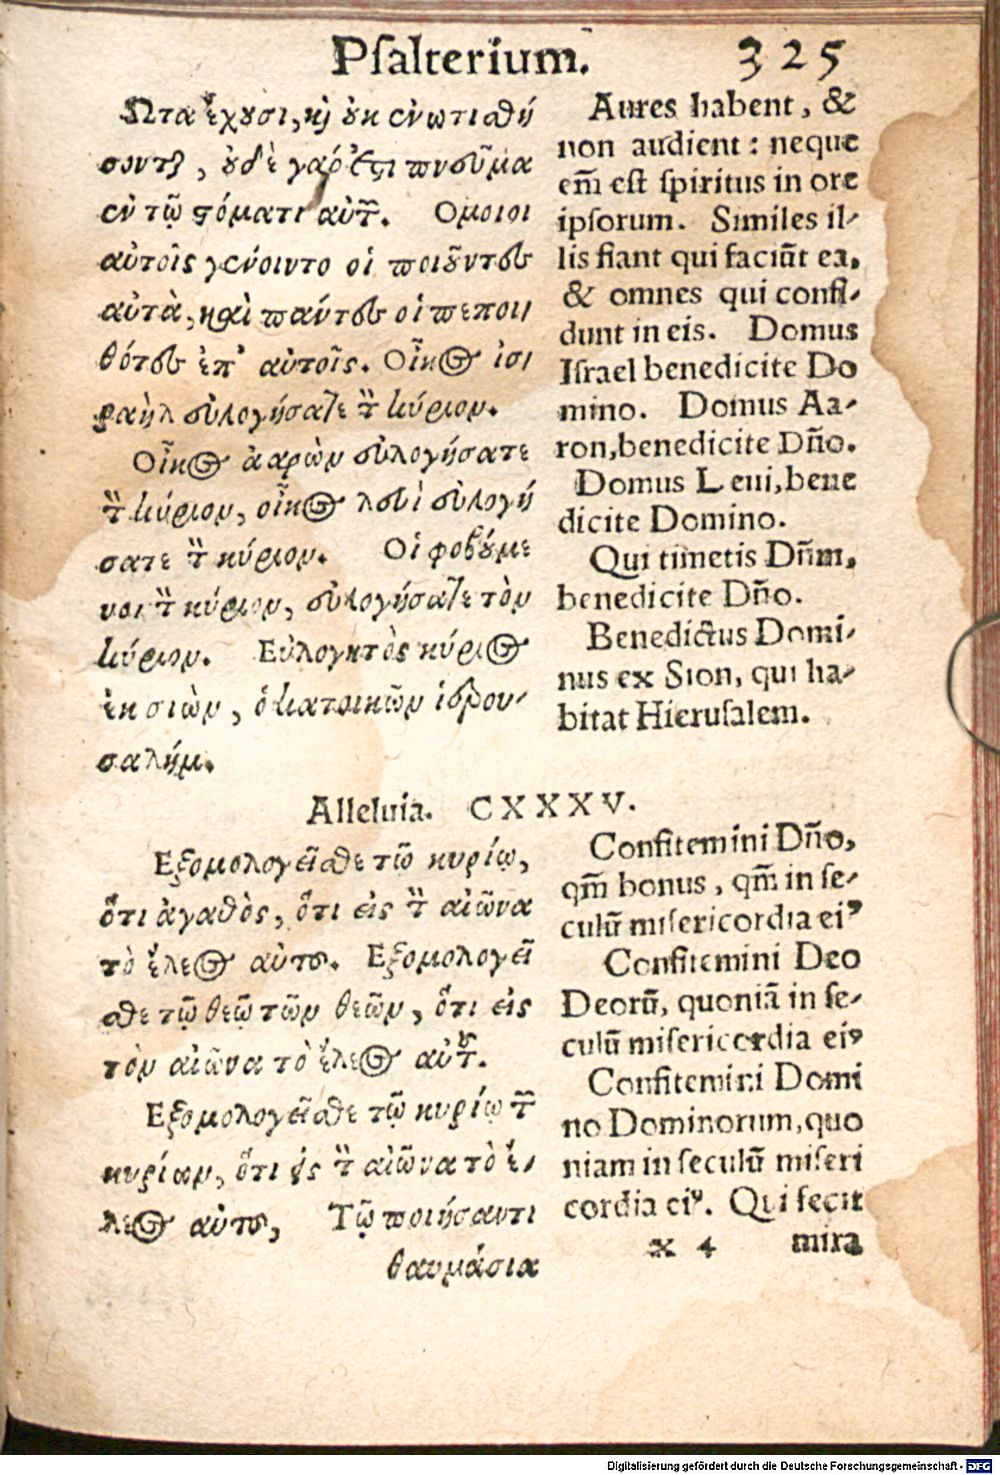 Psalterium. 325
Ὦτα ἔχουσι, καὶ οὐκ ἐνωτισθή
σονται, οὐδὲ γάρ ἐστι πνεῦμα
ἐν τῷ στόματι αὐτῶν. Ομοιοι
αὐτοῖς γένοιντο οἱ ποιοῦντες
αὐτὰ, καὶ πάντες οἱ πεποι/
θότες ἐπ' αὐτοῖς. Οἶκος ἰσ/
ραὴλ εὐλογήσατε τὸν κύριον.
Οἶκος ἀαρὼν εὐλογήσατε
τὸν κύριον, οἶκος λευὶ εὐλογή
σατε τὸν κύριον. Οἱ φοβούμε
νοι τὸν κύριον, εὐλογήσατε τὸν
κύριον. Εὐλογητὸς κύριος
ἐκ σιὼν, ὁ κατοικῶν ἱερου-
σαλήμ.
Aures habent, &
non audient: neque
em̃ est spiritus in ore
ipsorum. Similes il-
lis fiant qui faciũt ea,
& omnes qui confi-
dunt in eis. Domus
Israel benedicite Do
mino. Domus Aa-
ron, benedicite Dño.
Domus Leui, bene
dicite Domino.
Qui timetis Dñm,
benedicite Dño.
Benedictus Domi-
nus ex Sion, qui ha-
bitat Hierusalem.
Alleluia. CXXXV.
Εξομολογεῖσθε τῷ κυρίῳ,
ὅτι ἀγαθὸς, ὅτι εἰς τὸν αἰῶνα
τὸ ἔλεος αὐτοῦ. Εξομολογεῖ
σθε τῷ θεῷ τῶν θεῶν, ὅτι εἰς
τὸν αἰῶνα τὸ ἔλεος αὐτοῦ.
Εξομολογεῖσθε τῷ κυρίῳ τῶν
κυρίων, ὅτι εἰς τὸν αἰῶνα τὸ ἔ/
λεος αὐτοῦ, Τῷ ποιήσαντι
θαυμάσια
Confitemini Dño,
qm̃ bonus, qm̃ in se-
culũ misericordia eiꝰ
Confitemini Deo
Deorũ, quoniã in se-
culũ misericordia eiꝰ
Confitemini Domi
no Dominorum, quo
niam in seculũ miseri
cordia eiꝰ. Qui fecit
x 4 mira
Digitalisierung gefördert durch die Deutsche Forschungsgemeinschaft - DFG